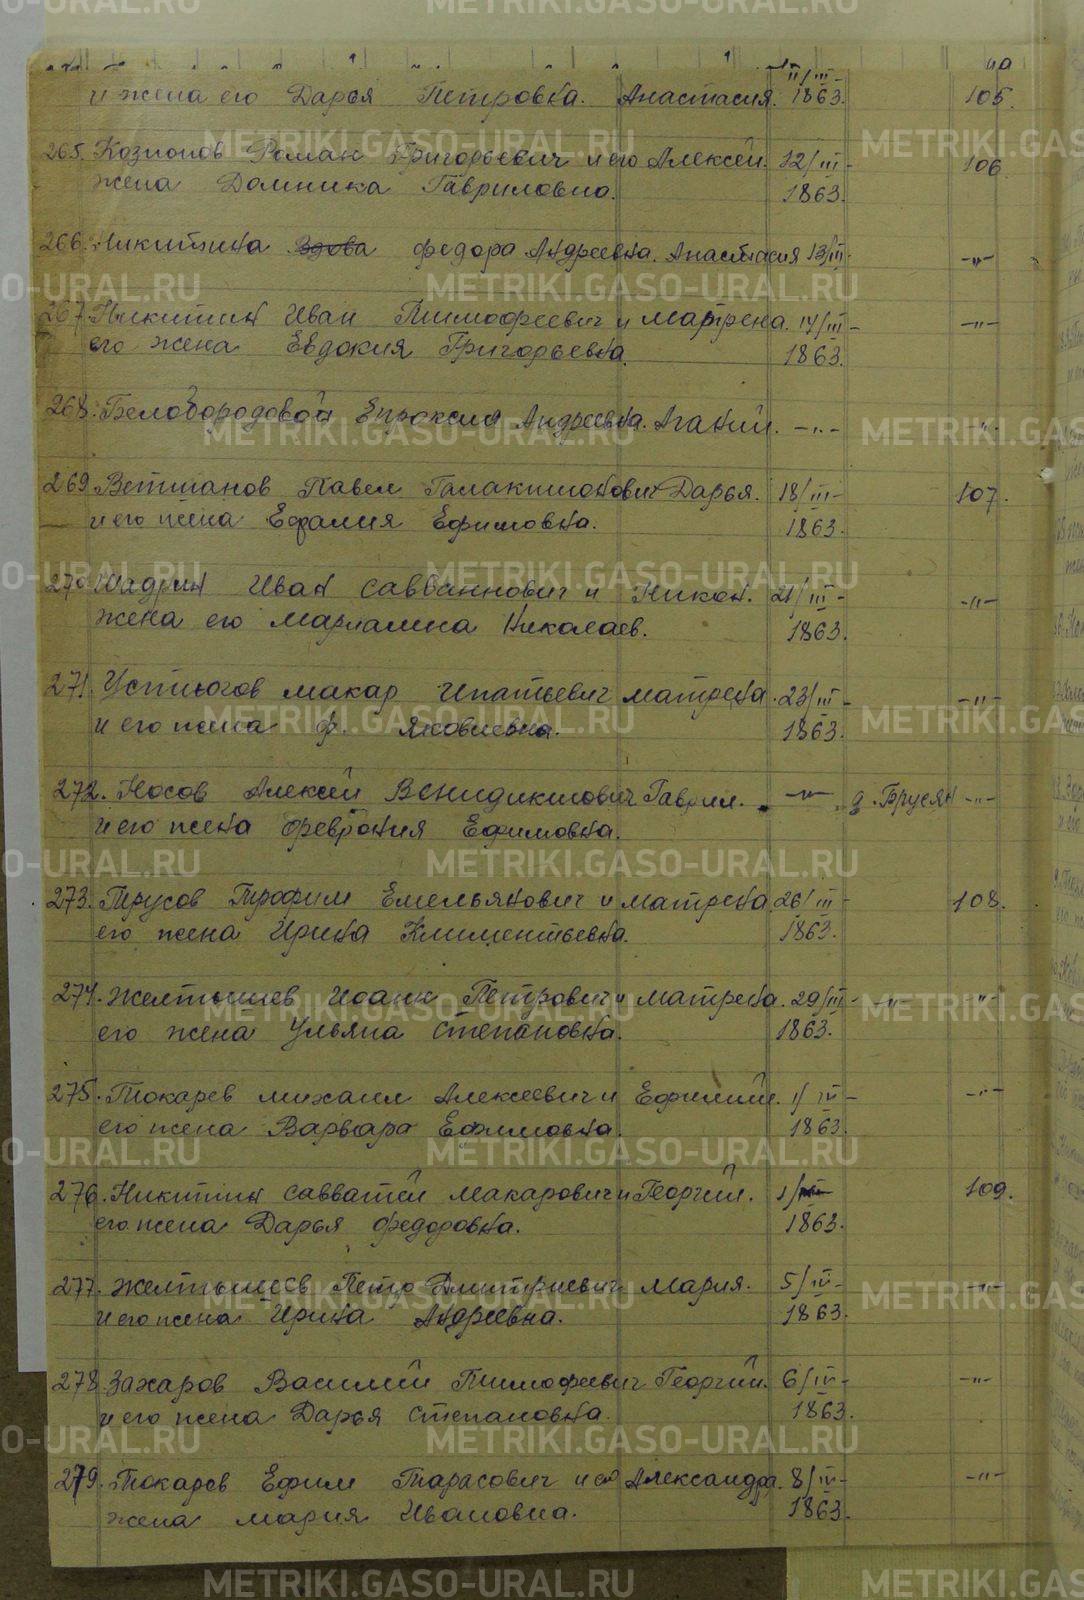 11/III-
и жена его Дарья Петровка. Анастасия. 1863. 105.
265. Козионов Роман Григорьевич и его Алексей. 12/III- 106
жена Домника Гавриловна. 1863.
266. Никитина вдова федора Андреевна. Анастасия 13/III- -"-
267. Никитин Иван Тимофеевич и матрена. 14/III- -"-
его жена Евдокия Григорьевна 1863.
268. Белобородовой Епроксия Андреевна. Агакий. -"- -"-
269 Ветшанов Павел Галактионович Дарья. 18/III- 107.
и его жена Ефалия Ефимовна. 1863.
270 Шадрин Иван Савваннович и Никон. 21/III- -"-
жена его Мариамна Николаев. 1863.
271. Устюгов макар Ипатьевич матрена. 23/III- -"-
и его жена ф. Яковлевна. 1863.
272. Носов Алексей Венидиктович Гаврил. -"- д. Брусян -"-
и его жена феврония Ефимовна.
273. Трусов Трофим Емельянович и матрена 26/III- 108.
его жена Ирина Климентьевна. 1863.
274. Желтышев Иоанн Петрович и матрена. 29/III- -"- -"-
его жена Ульяна степановна. 1863.
275. Токарев михаил Алексеевич и Ефимий. 1/IV- -"-
его жена Варвара Ефимовна. 1863.
276. Никитин савватей макарович и Георгий. 1/ 109.
его жена Дарья федоровна. 1863.
277. Желтышеев Петр Дмитриевич Мария. 5/IV- -"-
и его жена Ирина Андреевна. 1863.
278 Захаров Василий Тимофеевич Георгий. 6/IV- -"-
и его жена Дарья степановна. 1863.
279. Токарев Ефим Тарасович и его Александра. 8/IV- -"-
жена мария Ивановна. 1863.
METRIKI.GASO-URAL.RU